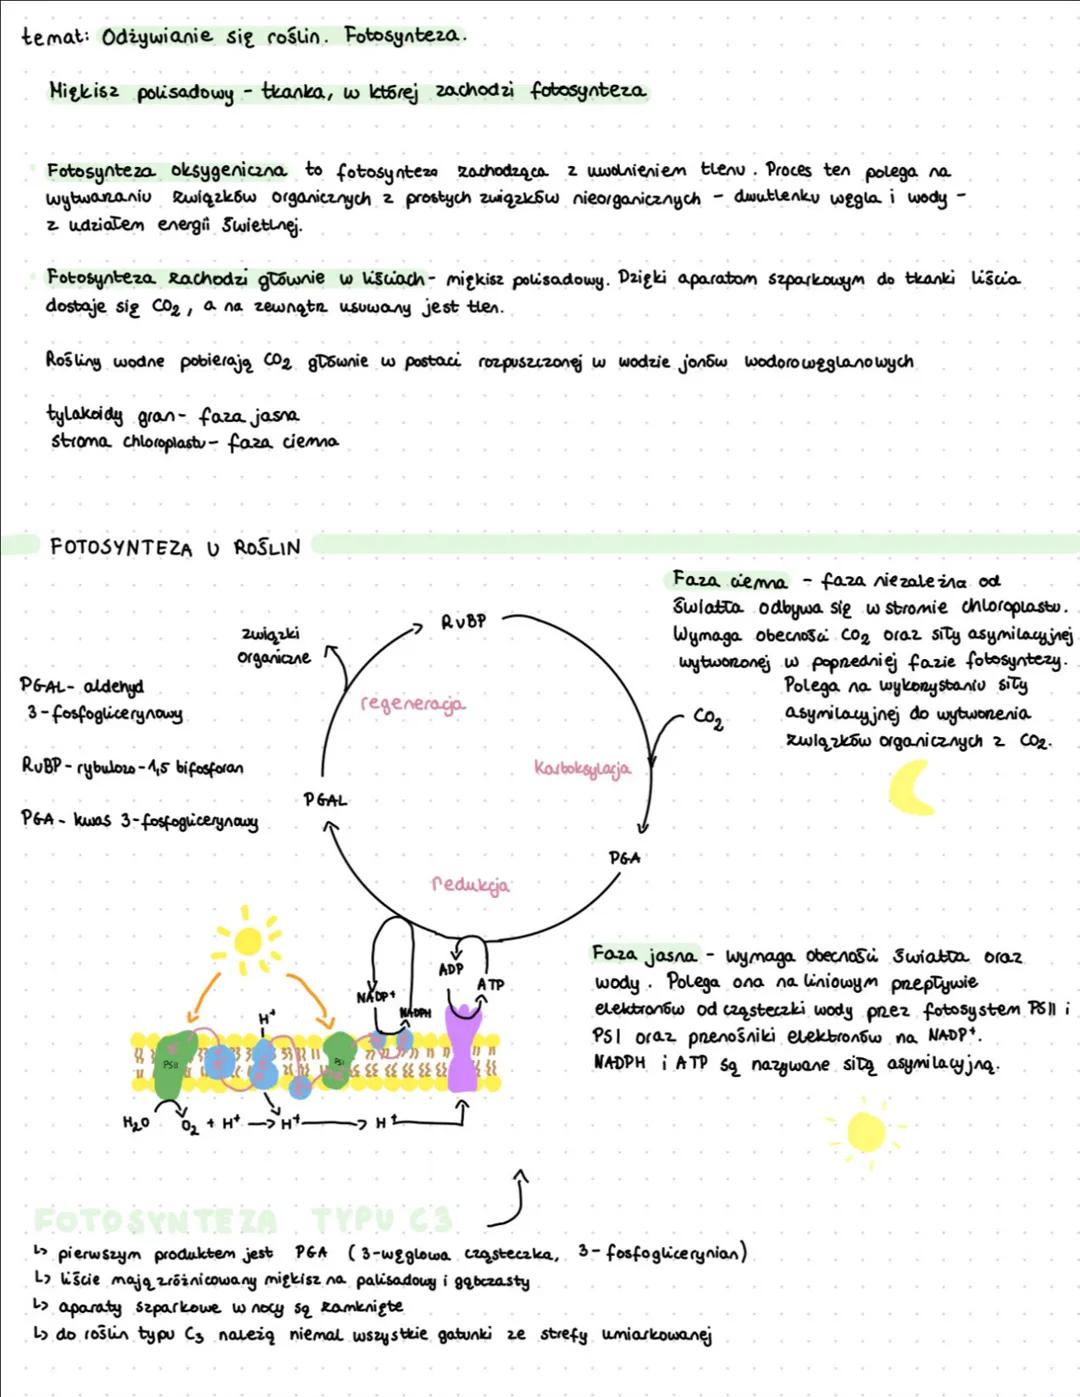 temat: Odżywianie się roślin. Fotosynteza.
Miękisz polisadowy - tkanka, w której zachodzi fotosynteza
Fotosynteza oksygeniczna to fotosynteza zachodząca z uwolnieniem tlenu. Proces ten polega na
wytwarzaniu związków organicznych z prostych związków nieorganicznych - dwutlenku węgla i wody -
z udziałem energii świetlnej.
Fotosynteza zachodzi głównie w liściach - miękisz polisadowy. Dzięki aparatom szparkowym do tkanki liścia
dostaje się CO2, a na zewnątrz usuwany jest tlen.
Rośliny wodne pobierają CO2 głównie w postaci rozpuszczonej w wodzie jonów wodorowęglanowych
tylakoidy gran - faza jasna
stroma chloroplastu - faza ciemna
FOTOSYNTEZA U ROŚLIN
Faza ciemna - faza niezależna od
światła odbywa się w stromie chloroplastu.
Wymaga obecności CO2 oraz siły asymilacyjnej
wytworzonej w poprzedniej fazie fotosyntezy.
Polega na wykorzystaniu siły
asymilacyjnej do wytworzenia
związków organicznych z CO2.
RuBP
związki
organiczne
PGAL - aldehyd
3-fosfoglicerynowy
regeneracja
CO2
RuBP - rybulozo-1,5 bifosforan
karboksylacja
PGAL
PGA - kwas 3-fosfoglicerynowy
PGA
redukcja
Faza jasna - wymaga obecności światła oraz
wody. Polega ona na liniowym przepływie
elektronów od cząsteczki wody przez fotosystem PSII i
PSI oraz przenośniki elektronów na NADP+.
NADPH i ATP są nazywane siłą asymilacyjną.
ADP
ATP
NADP+
NADPH
H+
PSII
PSI
H2O
O2 + H+
H+
H+
FOTOSYNTEZA TYPU C3
↳ pierwszym produktem jest PGA (3-węglowa cząsteczka, 3-fosfoglicerynian)
↳ liście mają zróżnicowany miękisz na palisadowy i gąbczasty
↳ aparaty szparkowe w nocy są zamknięte
↳ do roślin typu C3 należą niemal wszystkie gatunki ze strefy umiarkowanej